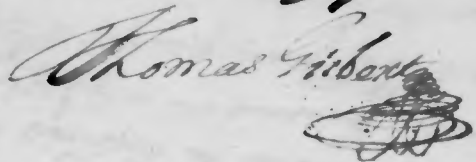 Thomas Gilbert